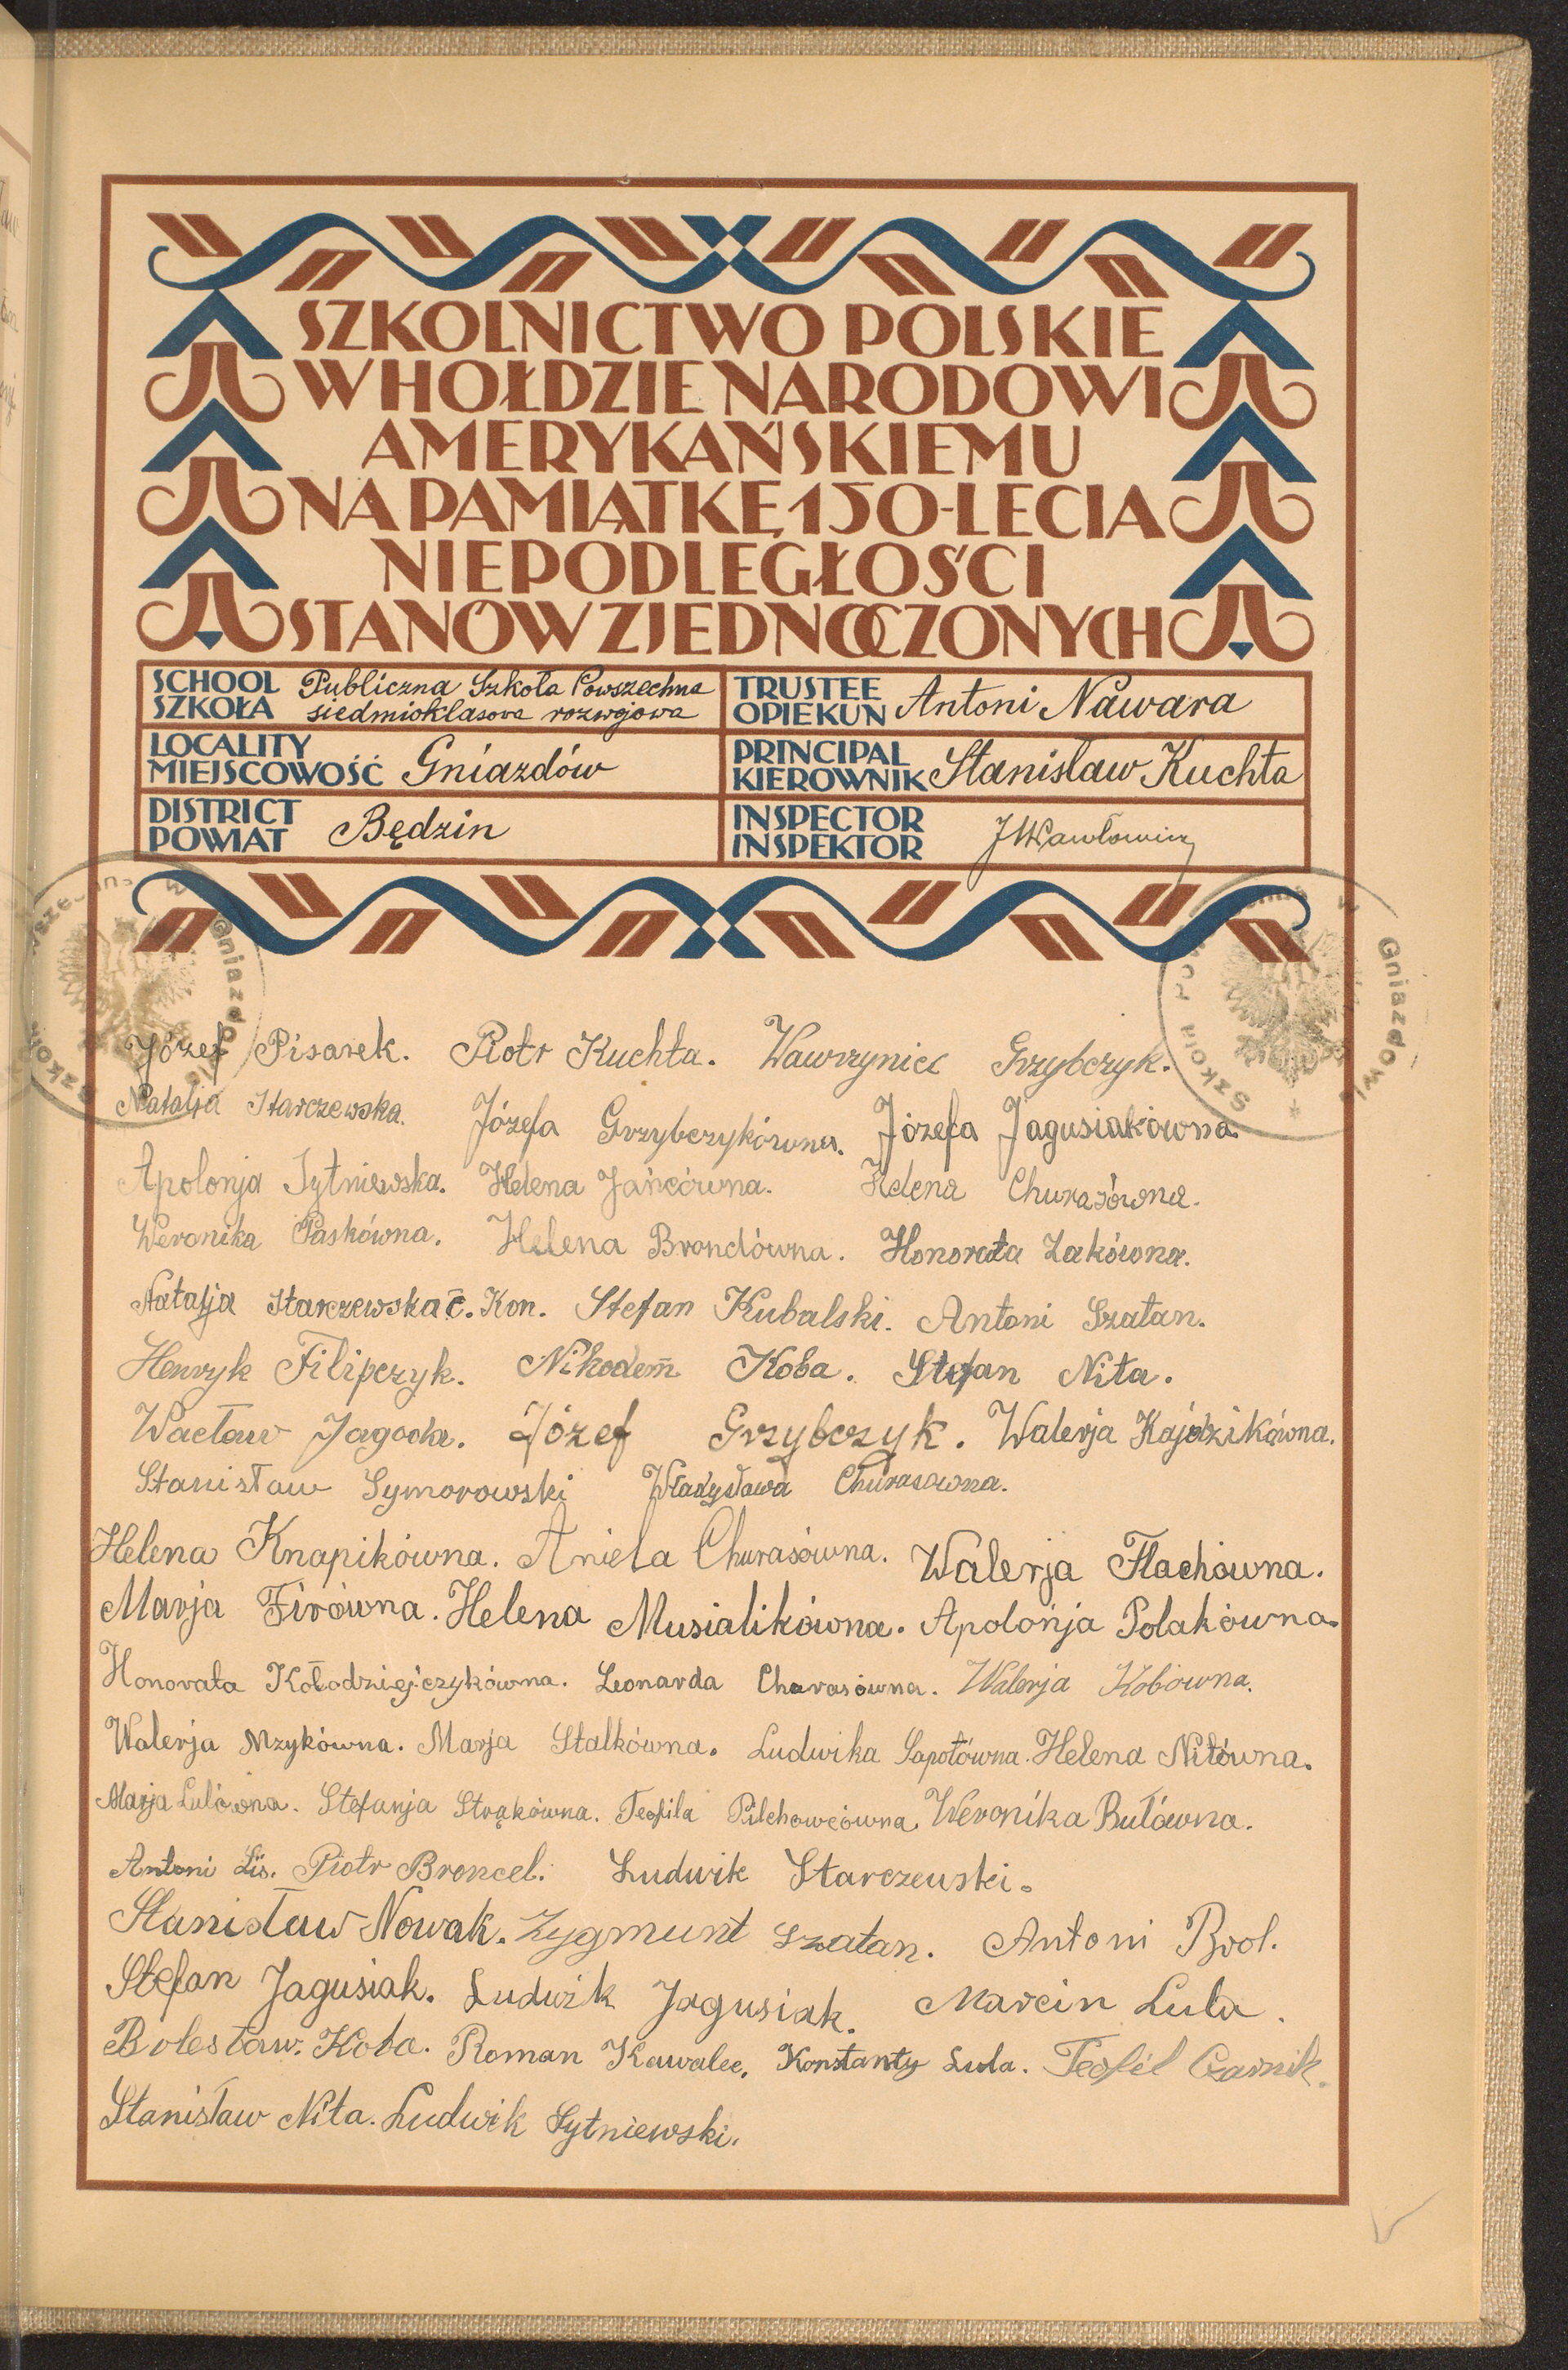 SZKOLNICTWO POLSKIE
W HOŁDZIE NARODOWI
AMERYKAŃSKIEMU
NA PAMIĄTKĘ 150-LECIA
NIEPODLEGŁOŚCI
STANÓW ZJEDNOCZONYCH
SCHOOL
SZKOŁA
Publiczna Szkoła Powszechna
siedmioklasowa rozwojowa
TRUSTEE
OPIEKUN
Antoni Nawara
LOCALITY
MIEJSCOWOŚĆ
Gniazdów
PRINCIPAL
KIEROWNIK
Stanisław Kuchta
DISTRICT
POWIAT
Będzin
INSPECTOR
INSPEKTOR
Józef Pisarek. Piotr Kuchta. Wawrzyniec Grzybczyk.
Natalja Starczewska. Józefa Grzybczykówna. Józefa Jagusiakówna.
Apolonja Sytniewska. Helena Jańcówna. Helena Churasówna.
Weronika Paskówna. Helena Brondówna. Honorata Żakówna.
Natalja Starczewska c. Kon. Stefan Kubalski. Antoni Szatan.
Henryk Filipczyk. Nikodem Koba. Stefan Nita.
Wacław Jagoda. Józef Grzybczyk. Walerja Kajdzikówna.
Stanisław Symorowski Władysława Churasowna.
Helena Knapikówna. Aniela Churasówna. Walerja Flachówna.
Marja Firówna. Helena Musialikówna. Apolonja Polakówna.
Honorata Kołodziejczykówna. Leonarda Churasówna. Walerja Kobówna.
Walerja Mzykówna. Marja Stalkówna. Ludwika Sapotówna. Helena Nitówna.
Marja Lulówna. Stefanja Strąkówna. Teofila Pilchowcówna. Weronika Butówna.
Antoni Lis. Piotr Broncel. Ludwik Starczewski.
Stanisław Nowak. Zygmunt Szatan. Antoni Brol.
Stefan Jagusiak. Ludwik Jagusiak. Marcin Lula.
Bolesław Koba. Roman Kawalec. Konstanty Lula. Teofil Czarnik.
Stanisław Nita. Ludwik Sytniewski.